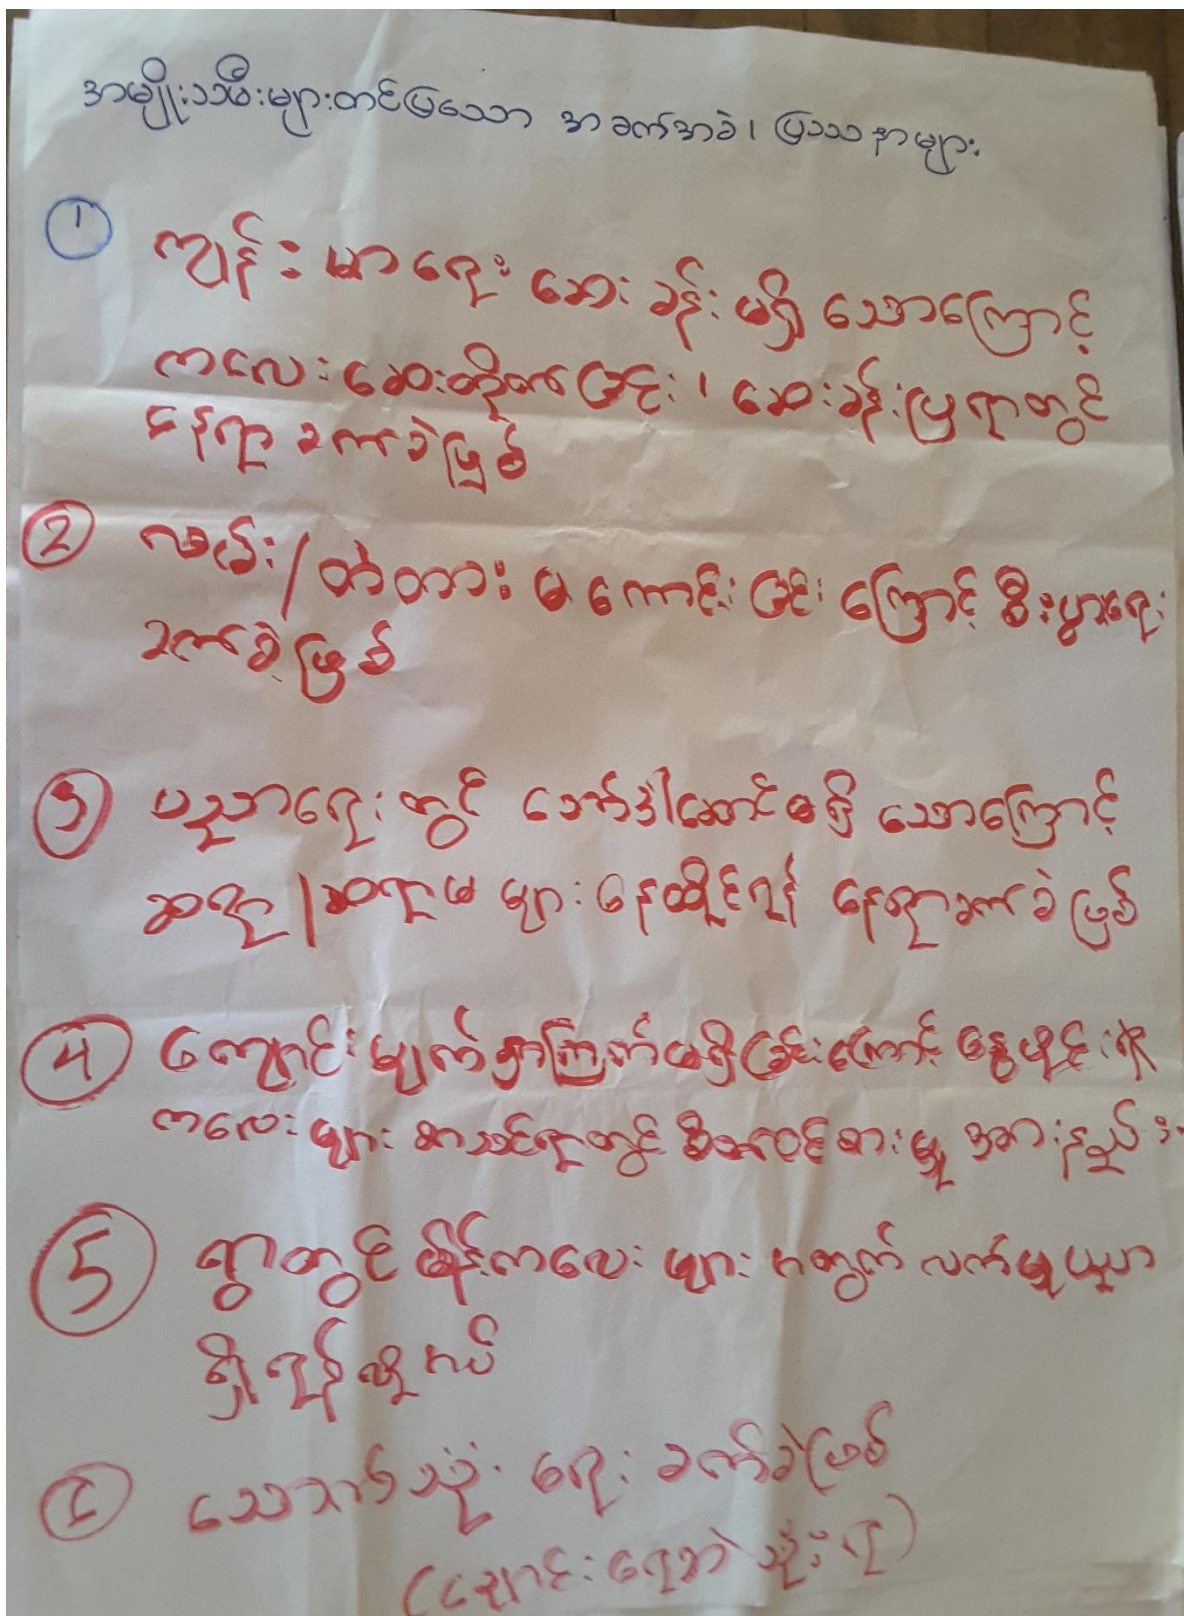 အမျိုးသမီးများတင်ပြသော အခက်အခဲ၊ ပြဿနာများ
၁ ကျန်းမာရေး ဆေးခန်းမရှိသောကြောင့်
ကလေးဆေးတိုက်ခြင်း၊ ဆေးခန်းပြရာတွင်
နေရာခက်ခဲဖြစ်
2 လမ်း/တံတားမကောင်းခြင်းကြောင့် စီးပွားရေး
ခက်ခဲဖြစ်
3 ပညာရေးတွင် ဘော်ဒါဆောင်မရှိသောကြောင့်
ဆရာ/ဆရာမများနေထိုင်ရန် နေရာခက်ခဲဖြစ်
4 ကျောင်းမျက်နှာကြက်မရှိခြင်းကြောင့် နွေပိုင်း
ကလေးများ စာသင်ရာတွင် စိတ်ဝင်စားမှု အားနည်း
5 ရွာတွင် မိန်းကလေးများအတွက် လက်မှုပညာ
ရှိရန်လိုအပ်
6 သောက်သုံးရေခက်ခဲဖြစ်
(ချောင်းရေဘဲသုံးရ)